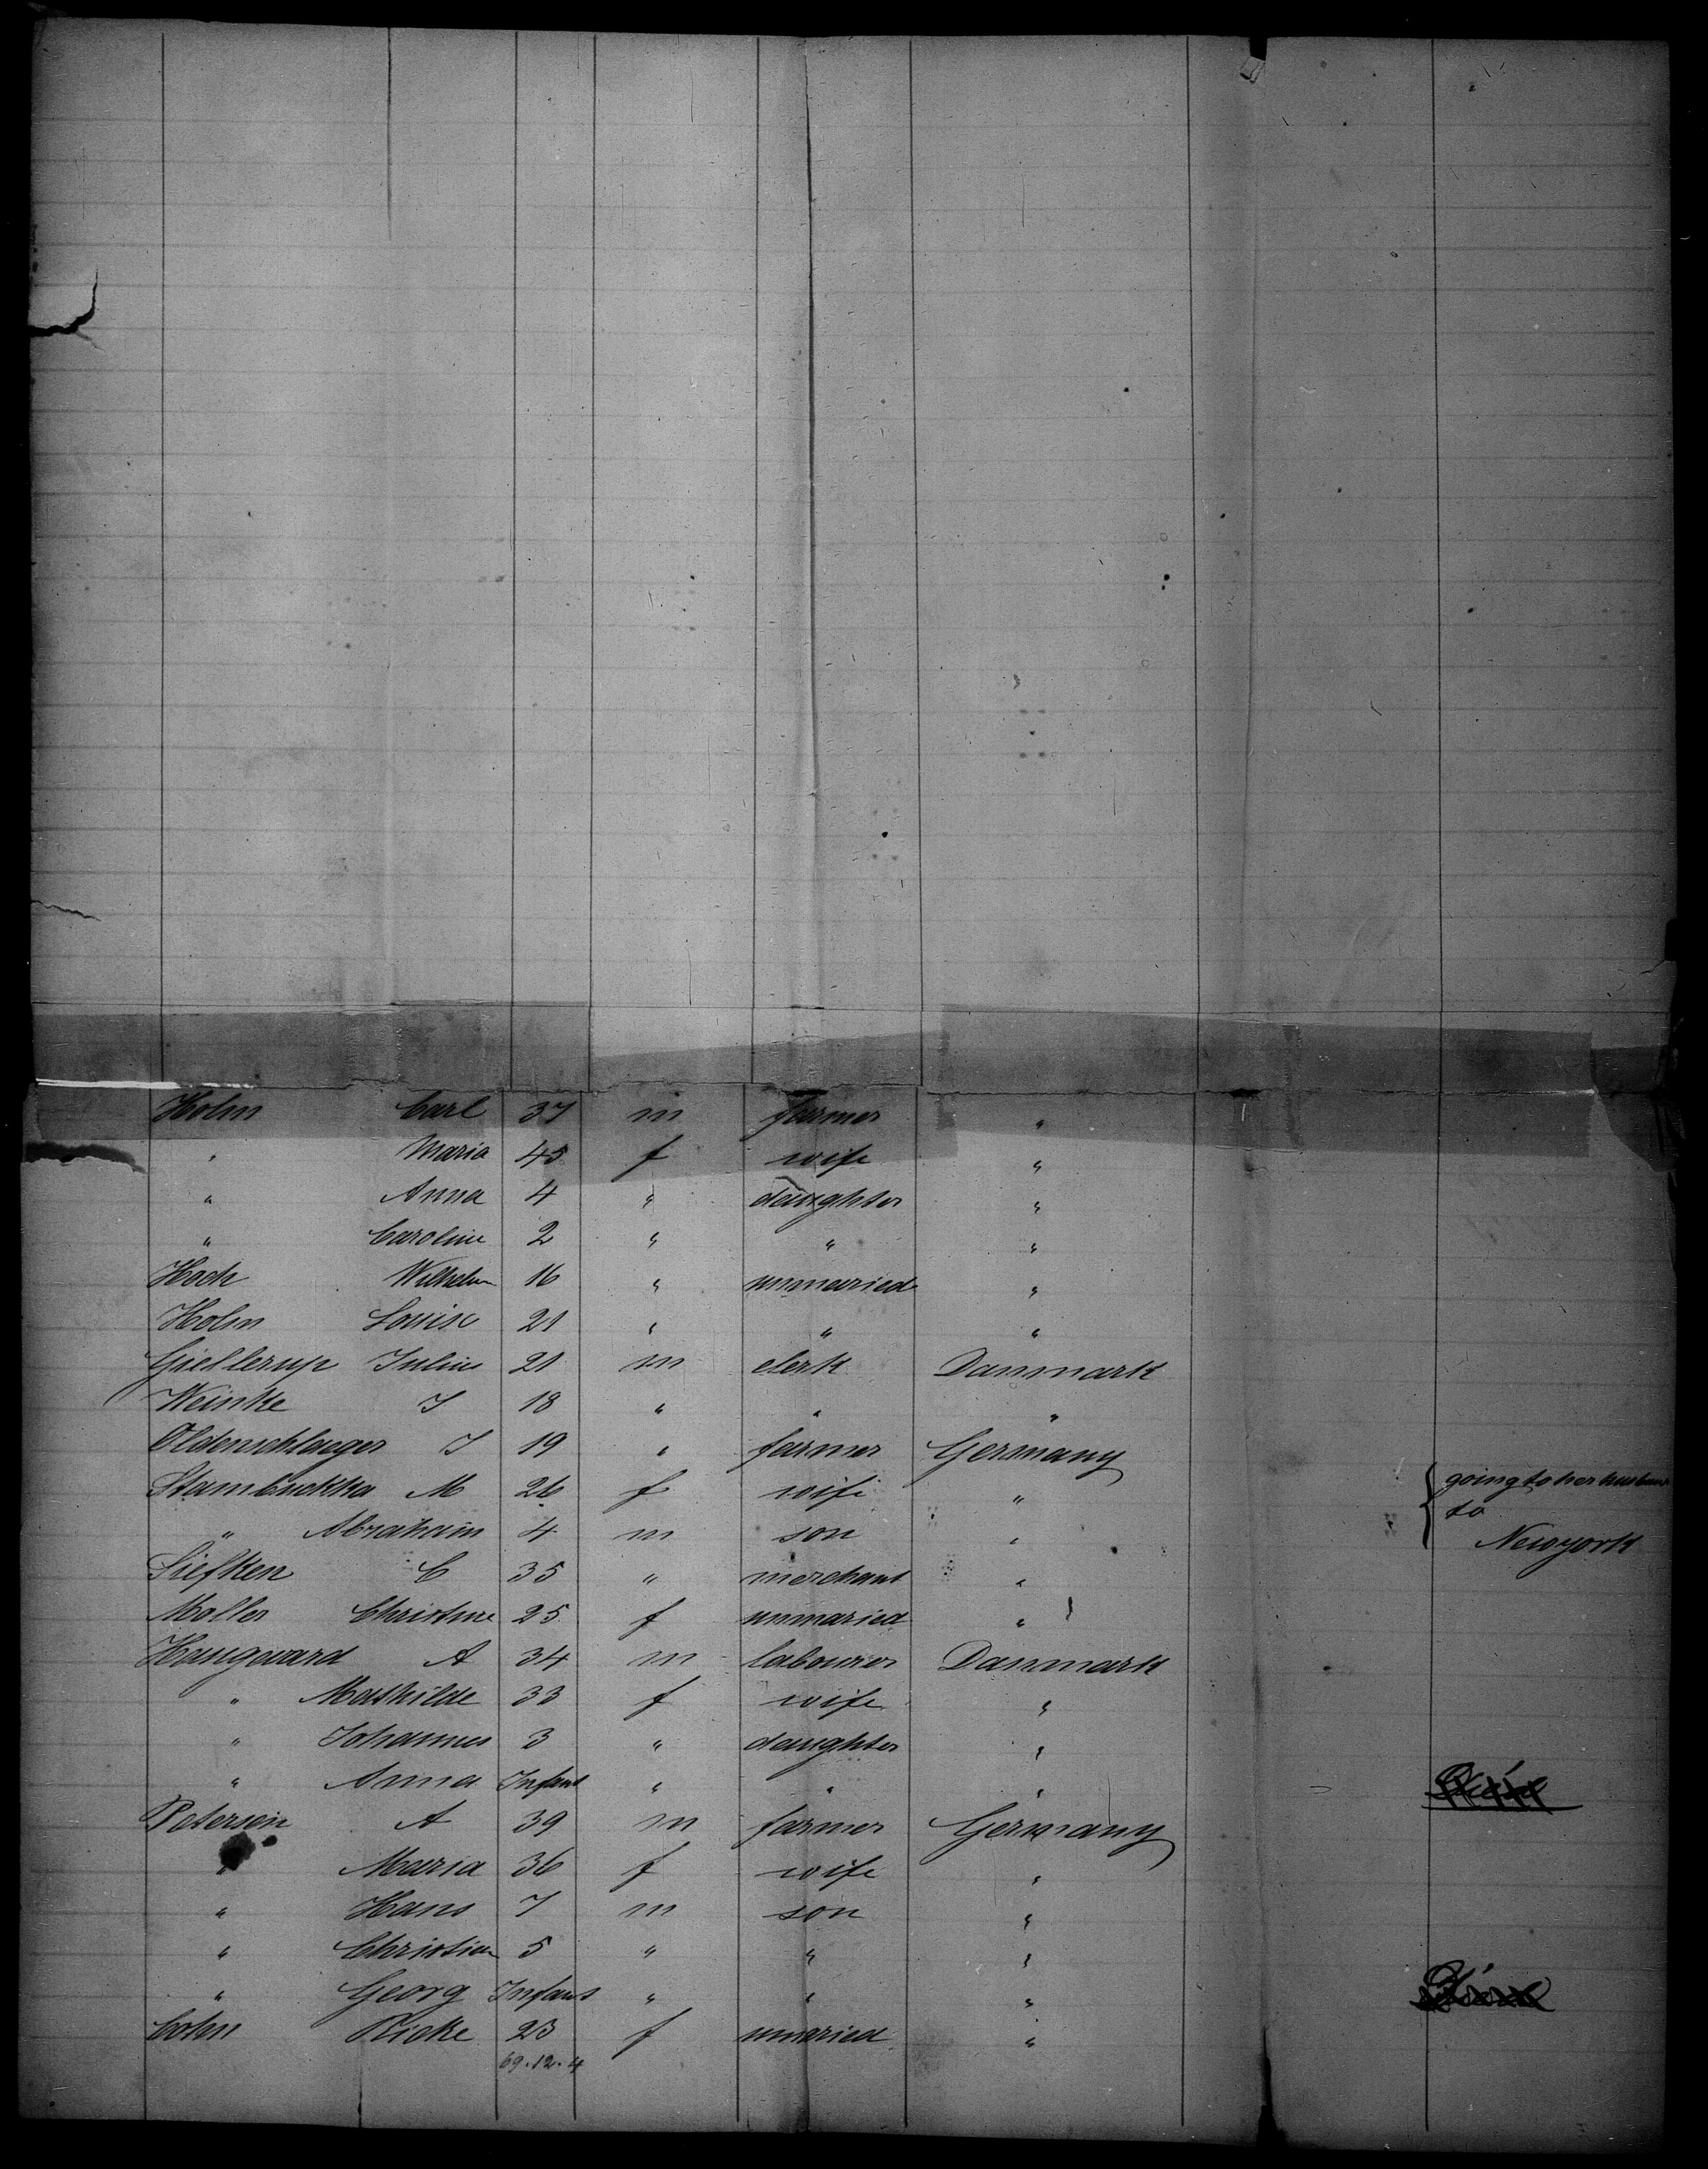 Holm Carl 37 m farmer "
" Maria 45 f wife "
" Anna 4 " daughter "
" Caroline 2 " " "
Hoch Wilhelm 16 " unmaried "
Holm Louise 21 " " "
Giellerup Julius 21 m clerk Danmark
Weinke J 18 " " "
Oldenschlager J 19 " farmer Germany
Stambuckka M 26 f wife " going to her husband
" Abraham 4 m son " to
Newyork
Siefken C 35 " merchant "
Moller Christine 25 f unmaried "
Haugaard A 34 m labourer Danmark
" Mathilde 33 f wife "
" Johannes 3 " daughter "
" Anna Infant " " "
Petersen A 39 m farmer Germany
" Maria 36 f wife "
" Hans 7 m son "
" Christian 5 " " "
" Georg Infant " " "
Cohn Ricke 23 f unmaried "
69.12.4